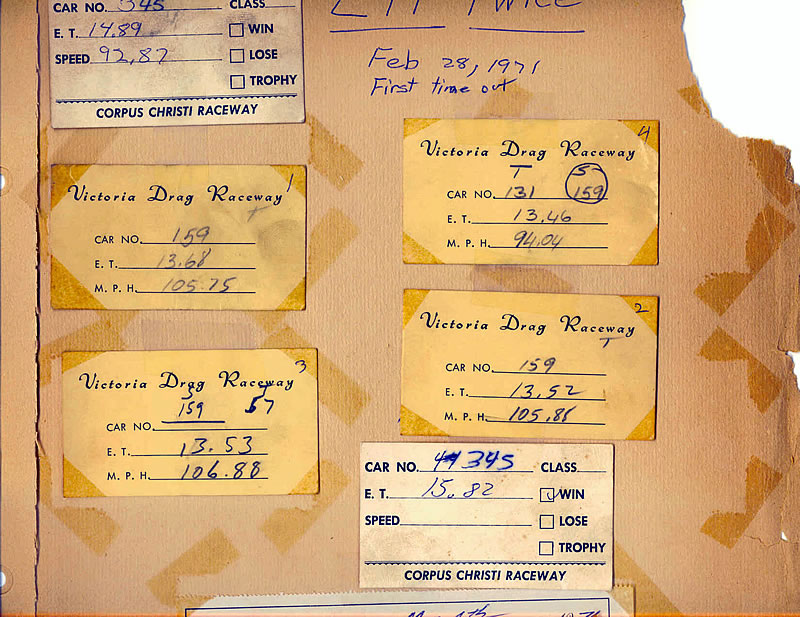 CAR NO. 345 CLASS
E. T. 14.89 WIN
SPEED 92.87 LOSE
TROPHY
CORPUS CHRISTI RACEWAY
Twice
Feb 28, 1971
First time out
1
Victoria Drag Raceway
T
CAR NO. 159
E. T. 13.68
M. P. H. 105.75
4
Victoria Drag Raceway
T S
CAR NO. 131 159
E. T. 13.46
M. P. H. 94.04
3
Victoria Drag Raceway
159 57
CAR NO.
E. T. 13.53
M. P. H. 106.88
2
Victoria Drag Raceway
T
CAR NO. 159
E. T. 13.52
M. P. H. 105.88
CAR NO. 345 CLASS
E. T. 15.82 WIN
SPEED LOSE
TROPHY
CORPUS CHRISTI RACEWAY